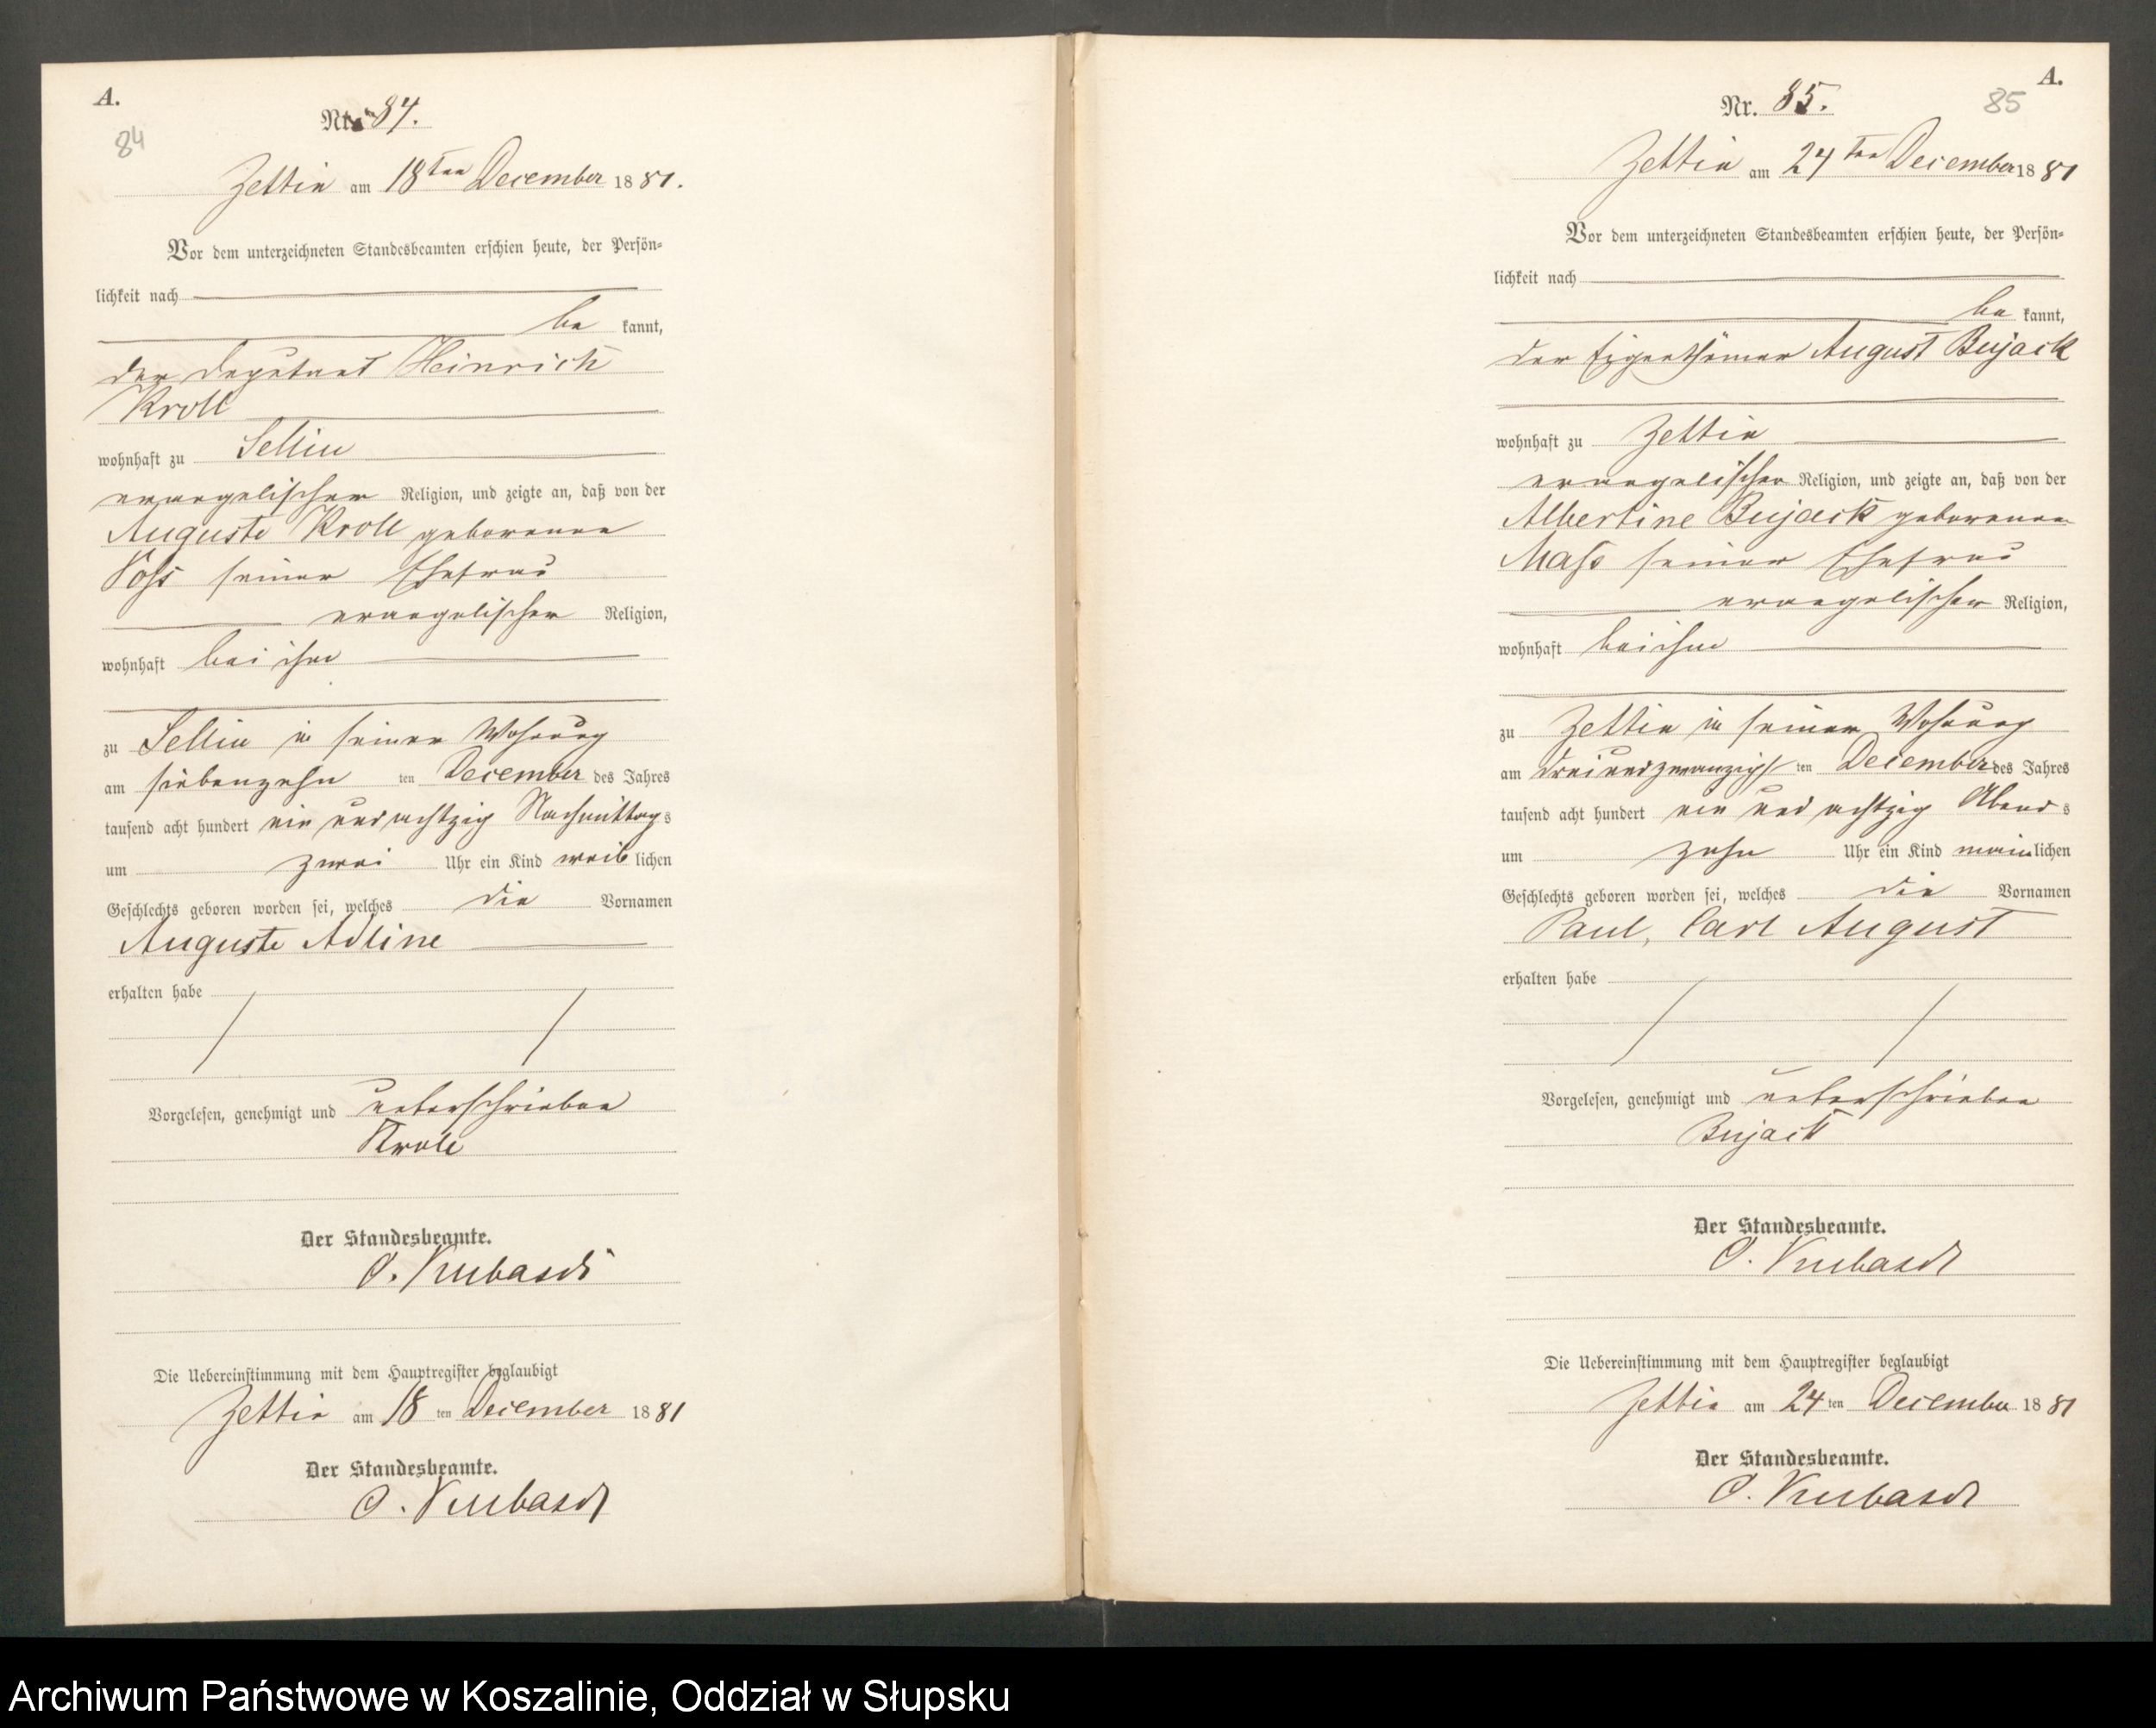 A.
84
Nr. 84.
Zettin am 18ten December 1881.
Vor dem unterzeichneten Standesbeamten erschien heute, der Persön-
lichkeit nach
be kannt,
der Deputant Heinrich
Kroll
wohnhaft zu Sellin
evangelischer Religion, und zeigte an, daß von der
Auguste Kroll geborenen
Voss seiner Ehefrau
evangelischer Religion,
wohnhaft bei ihm
zu Sellin in seiner Wohnung
am siebenzehn ten December des Jahres
tausend acht hundert ein und achtzig Nachmittags
um zwei Uhr ein Kind weiblichen
Geschlechts geboren worden sei, welches die Vornamen
Auguste Adline
erhalten habe
Vorgelesen, genehmigt und unterschrieben
Kroll
Der Standesbeamte.
O. Kubasch
Die Uebereinstimmung mit dem Hauptregister beglaubigt
Zettin am 18 ten December 1881
Der Standesbeamte.
O. Kubasch
A.
85
Nr. 85.
Zettin am 24ten December 1881
Vor dem unterzeichneten Standesbeamten erschien heute, der Persön-
lichkeit nach
be kannt,
der Eigenthümer August Bujack
wohnhaft zu Zettin
evangelischer Religion, und zeigte an, daß von der
Albertine Bujack geborenen
Mass seiner Ehefrau
evangelischer Religion,
wohnhaft bei ihm
zu Zettin in seiner Wohnung
am dreiundzwanzigsten December des Jahres
tausend acht hundert ein und achtzig Abends
um zehn Uhr ein Kind männlichen
Geschlechts geboren worden sei, welches die Vornamen
Paul, Carl August
erhalten habe
Vorgelesen, genehmigt und unterschrieben
Bujack
Der Standesbeamte.
O. Kubasch
Die Uebereinstimmung mit dem Hauptregister beglaubigt
Zettin am 24 ten December 1881
Der Standesbeamte.
O. Kubasch
Archiwum Państwowe w Koszalinie, Oddział w Słupsku